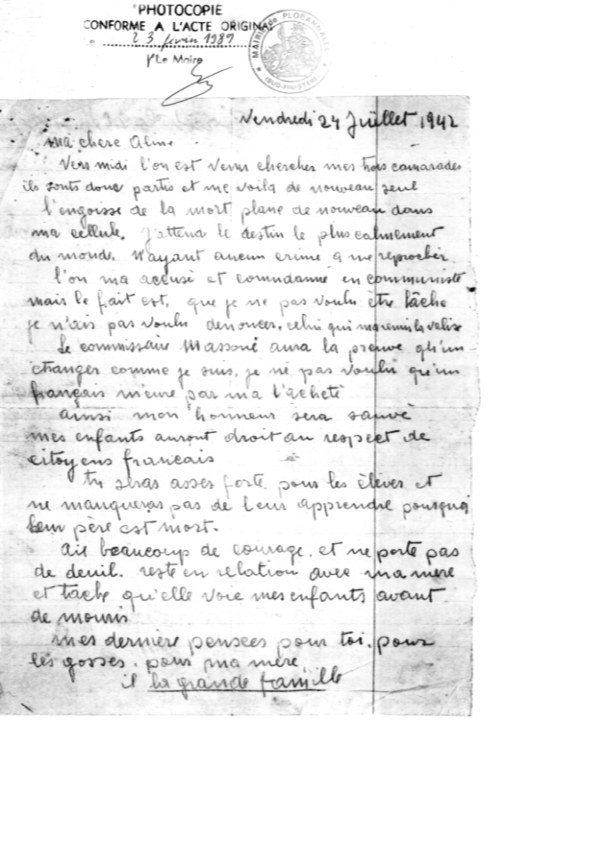 PHOTOCOPIE
CONFORME A L'ACTE ORIGINAL
23 février 1989
Le Maire
MAIRIE de PLOBANNALEC
(SUD-FINISTÈRE)
Vendredi 24 Juillet 1942
ma chere Aline
Vers midi l'on est venu chercher mes trois camarades
ils sonts donc partis et me voila de nouveau seul
l'engoisse de la mort plane de nouveau dans
ma cellule. J'attend le destin le plus calmement
du monde. N'ayant aucun crime a me reprocher
l'on ma accusé et comndanné en communiste
mais le fait est, que je ne pas voulu etre lâche
je n'ais pas voulu denoncer, celui qui ma remis la valise
Le commissaire Massoné aura la preuve qu'un
etranger comme je suis, je ne pas voulu qu'un
français meure par ma l'acheté
ainsi mon honneur sera sauvé
mes enfants auront droit au respect de
citoyens francais
tu seras asses forte pour les élever et
ne manqueras pas de leur apprendre pourquoi
leur père est mort.
aie beaucoup de courage. et ne porte pas
de deuil. reste en relation avec ma mere
et tache qu'elle voie mes enfants avant
de mouris
mes dernière pensées pour toi. pour
les gosses. pour ma mère.
il la grande famille